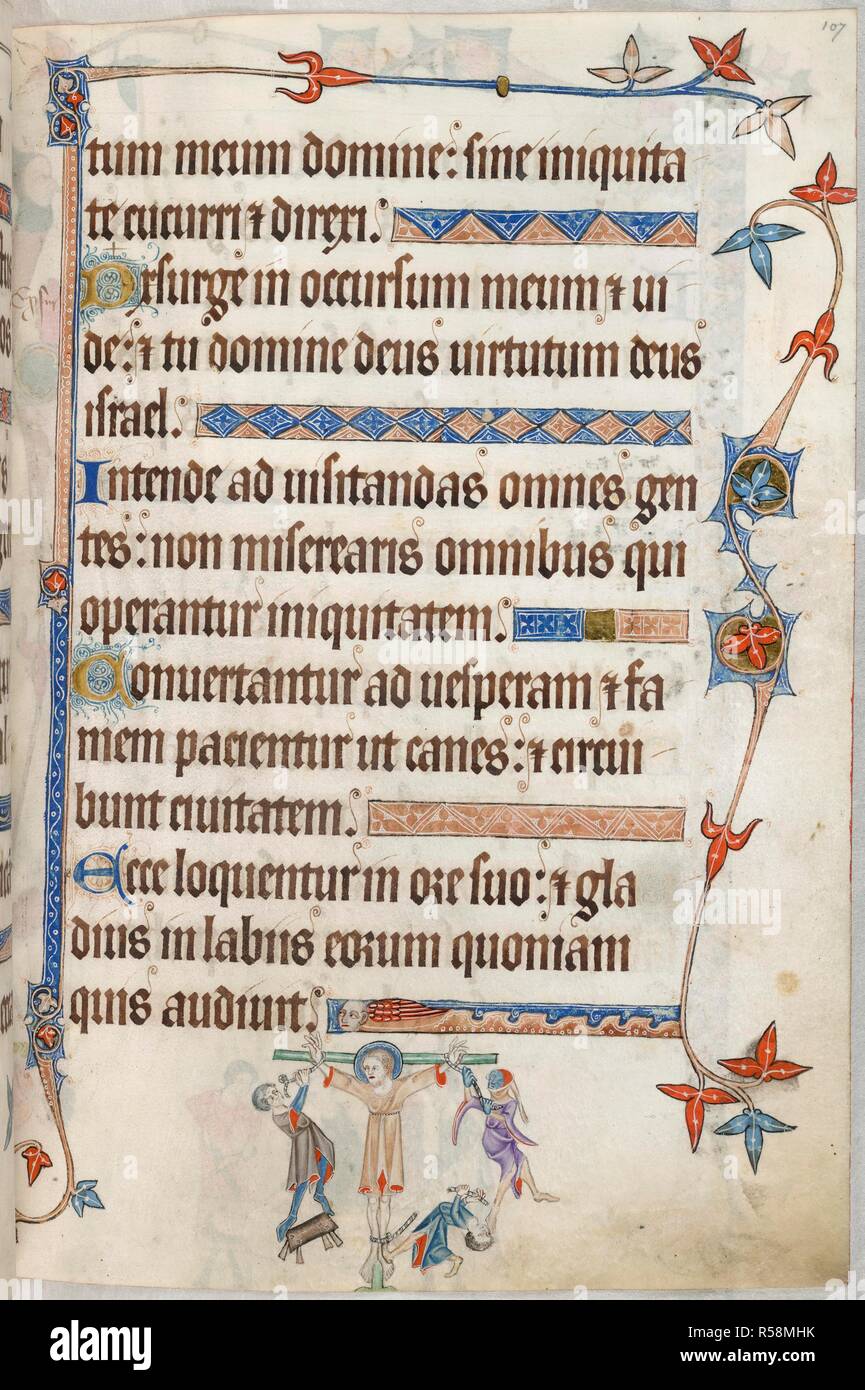 107
tum meum domine: sine iniquita
te cucurri ⁊ direxi.
Exsurge in occursum meum ⁊ ui
de: ⁊ tu domine deus uirtutum deus
israel.
Intende ad uisitandas omnes gen
tes: non miserearis omnibus qui
operantur iniquitatem.
Conuertantur ad uesperam ⁊ fa
mem pacientur ut canes: ⁊ circui
bunt ciuitatem.
Ecce loquentur in ore suo: ⁊ gla
dius in labiis eorum quoniam
quis audiuit.
alamy
Image ID: R58MHK
www.alamy.com